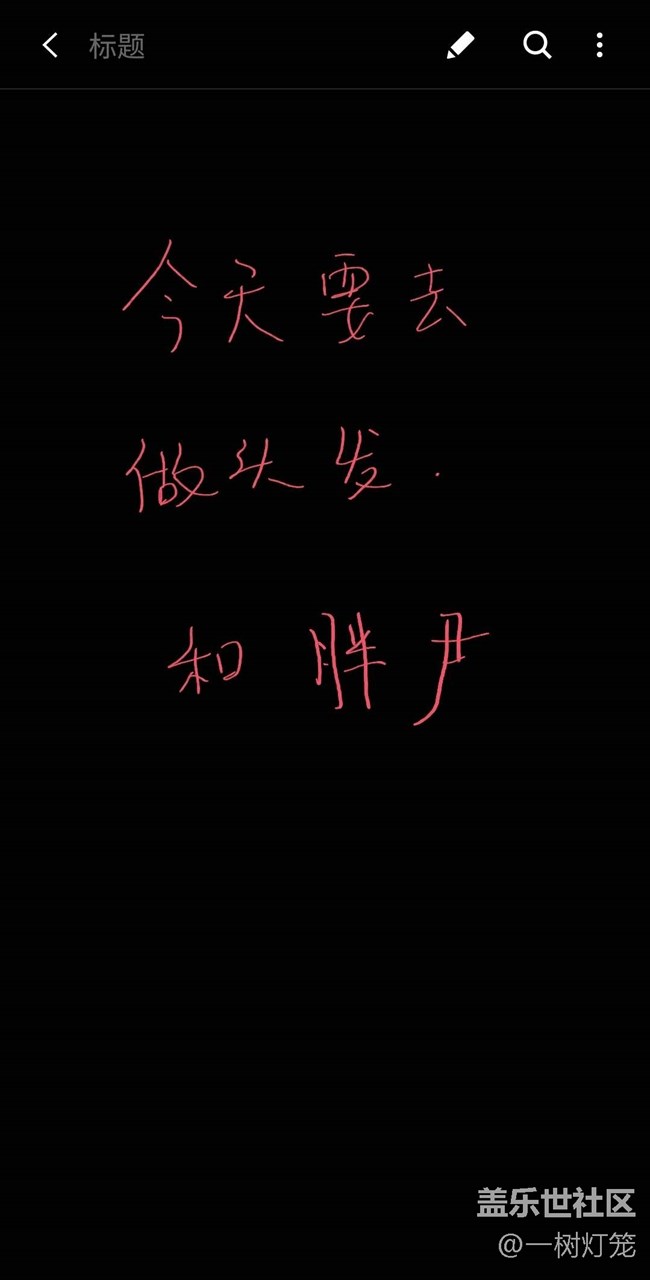 标题
今天要去
做头发.
和胖尹
盖乐世社区
@一树灯笼